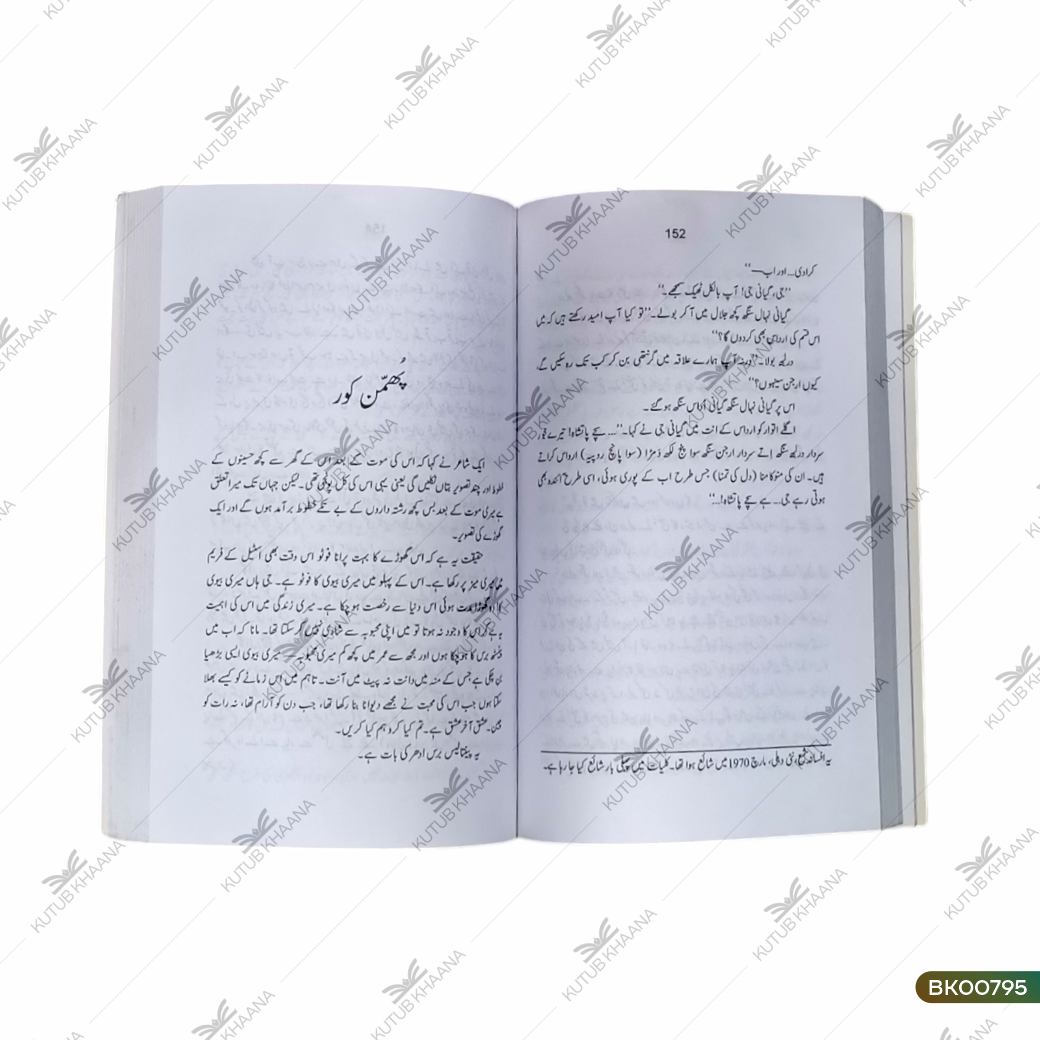 152
کرادی... اور اب—‘‘
’’جی، گیانی جی! آپ بالکل ٹھیک سمجھے۔‘‘
گیانی نہال سنگھ کچھ جلال میں آکر بولے۔ ’’تو کیا آپ امید رکھتے ہیں کہ میں
اس قسم کی ارداس بھی کردوں گا؟‘‘
درلبھ بولا۔ ’’ورنہ آپ ہمارے علاقہ میں گرنتھی بن کر کب تک رہ سکیں گے
کیوں ارجن سیہوں؟‘‘
اس پر گیانی نہال سنگھ گیانی اُداس سنگھ ہو گئے۔
اگلے اتوار کو ارداس کے انت میں گیانی جی نے کہا۔ ’’... سچے پاتشاہ! تیرے
سردار درلبھ سنگھ اتے سردار ارجن سنگھ سوا پنج لکھ دمڑا (سوا پانچ روپیہ) ارداس کراتے
ہیں۔ ان کی منوکامنا (دل کی تمنا) جس طرح اب کے پوری ہوئی، اسی طرح آئندہ بھی
ہوتی رہے جی... ہے سچے پاتشاہ!...‘‘
یہ افسانہ شمع، نئی دہلی، مارچ 1970 میں شائع ہوا تھا۔ کلیات میں پہلی بار شائع کیا جا رہا ہے۔
پھُمّن کور
ایک شاعر نے کہا کہ اس کی موت کے بعد اس کے گھر سے کچھ حسینوں کے
خطوط اور چند تصویر بتاں نکلیں گی یعنی یہی اس کی کل پونجی تھی۔ لیکن جہاں تک میرا تعلق
ہے میری موت کے بعد بس کچھ رشتہ داروں کے بے تکے خطوط برآمد ہوں گے اور ایک
گھوڑے کی تصویر۔
حقیقت یہ ہے کہ اس گھوڑے کا بہت پرانا فوٹو اس وقت بھی اسٹیل کے فریم
میری میز پر رکھا ہے۔ اس کے پہلو میں میری بیوی کا فوٹو ہے۔ جی ہاں میری بیوی
گھوڑا مدت ہوئی اس دنیا سے رخصت ہوچکا ہے۔ میری زندگی میں اس کی اہمیت
یہ ہے کہ اس کا وجود نہ ہوتا تو میں اپنی محبوبہ سے شادی نہیں کر سکتا تھا۔ مانا کہ اب میں
برس کا ہوچکا ہوں اور مجھ سے عمر میں کچھ کم میری محبوبہ— میری بیوی ایسی بڑھیا
بن چکی ہے جس کے منہ میں دانت نہ پیٹ میں آنت۔ تاہم میں اس زمانے کو کیسے بھلا
سکتا ہوں جب اس کی محبت نے مجھے دیوانا بنا رکھا تھا، جب دن کو آرام تھا، نہ رات کو
چین۔ عشق آخر عشق ہے۔ تم کیا کرو ہم کیا کریں۔
یہ پینتالیس برس ادھر کی بات ہے۔
KUTUB KHAANA
BK00795